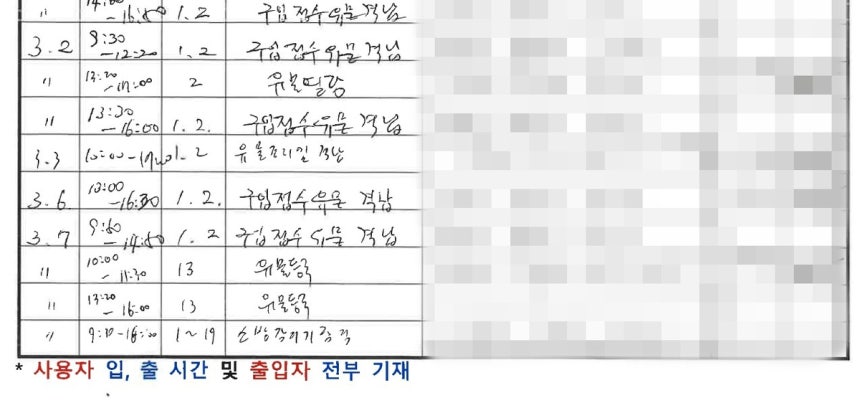 " 14:00-16:50 1.2 구입접수유물 격납
3.2 9:30-12:20 1.2 구입접수유물 격납
" 13:20-17:00 2 유물
" 13:30-16:00 1.2. 구입접수유물 격납
3.3 10:00- 1.2 유물 격납
3.6 10:00-16:30 1.2. 구입접수유물 격납
3.7 1.2 구입접수유물 격납
" 10:00-11:30 13 유물등록
" 13:20-16:00 13 유물등록
" 1~19
* 사용자 입, 출 시간 및 출입자 전부 기재